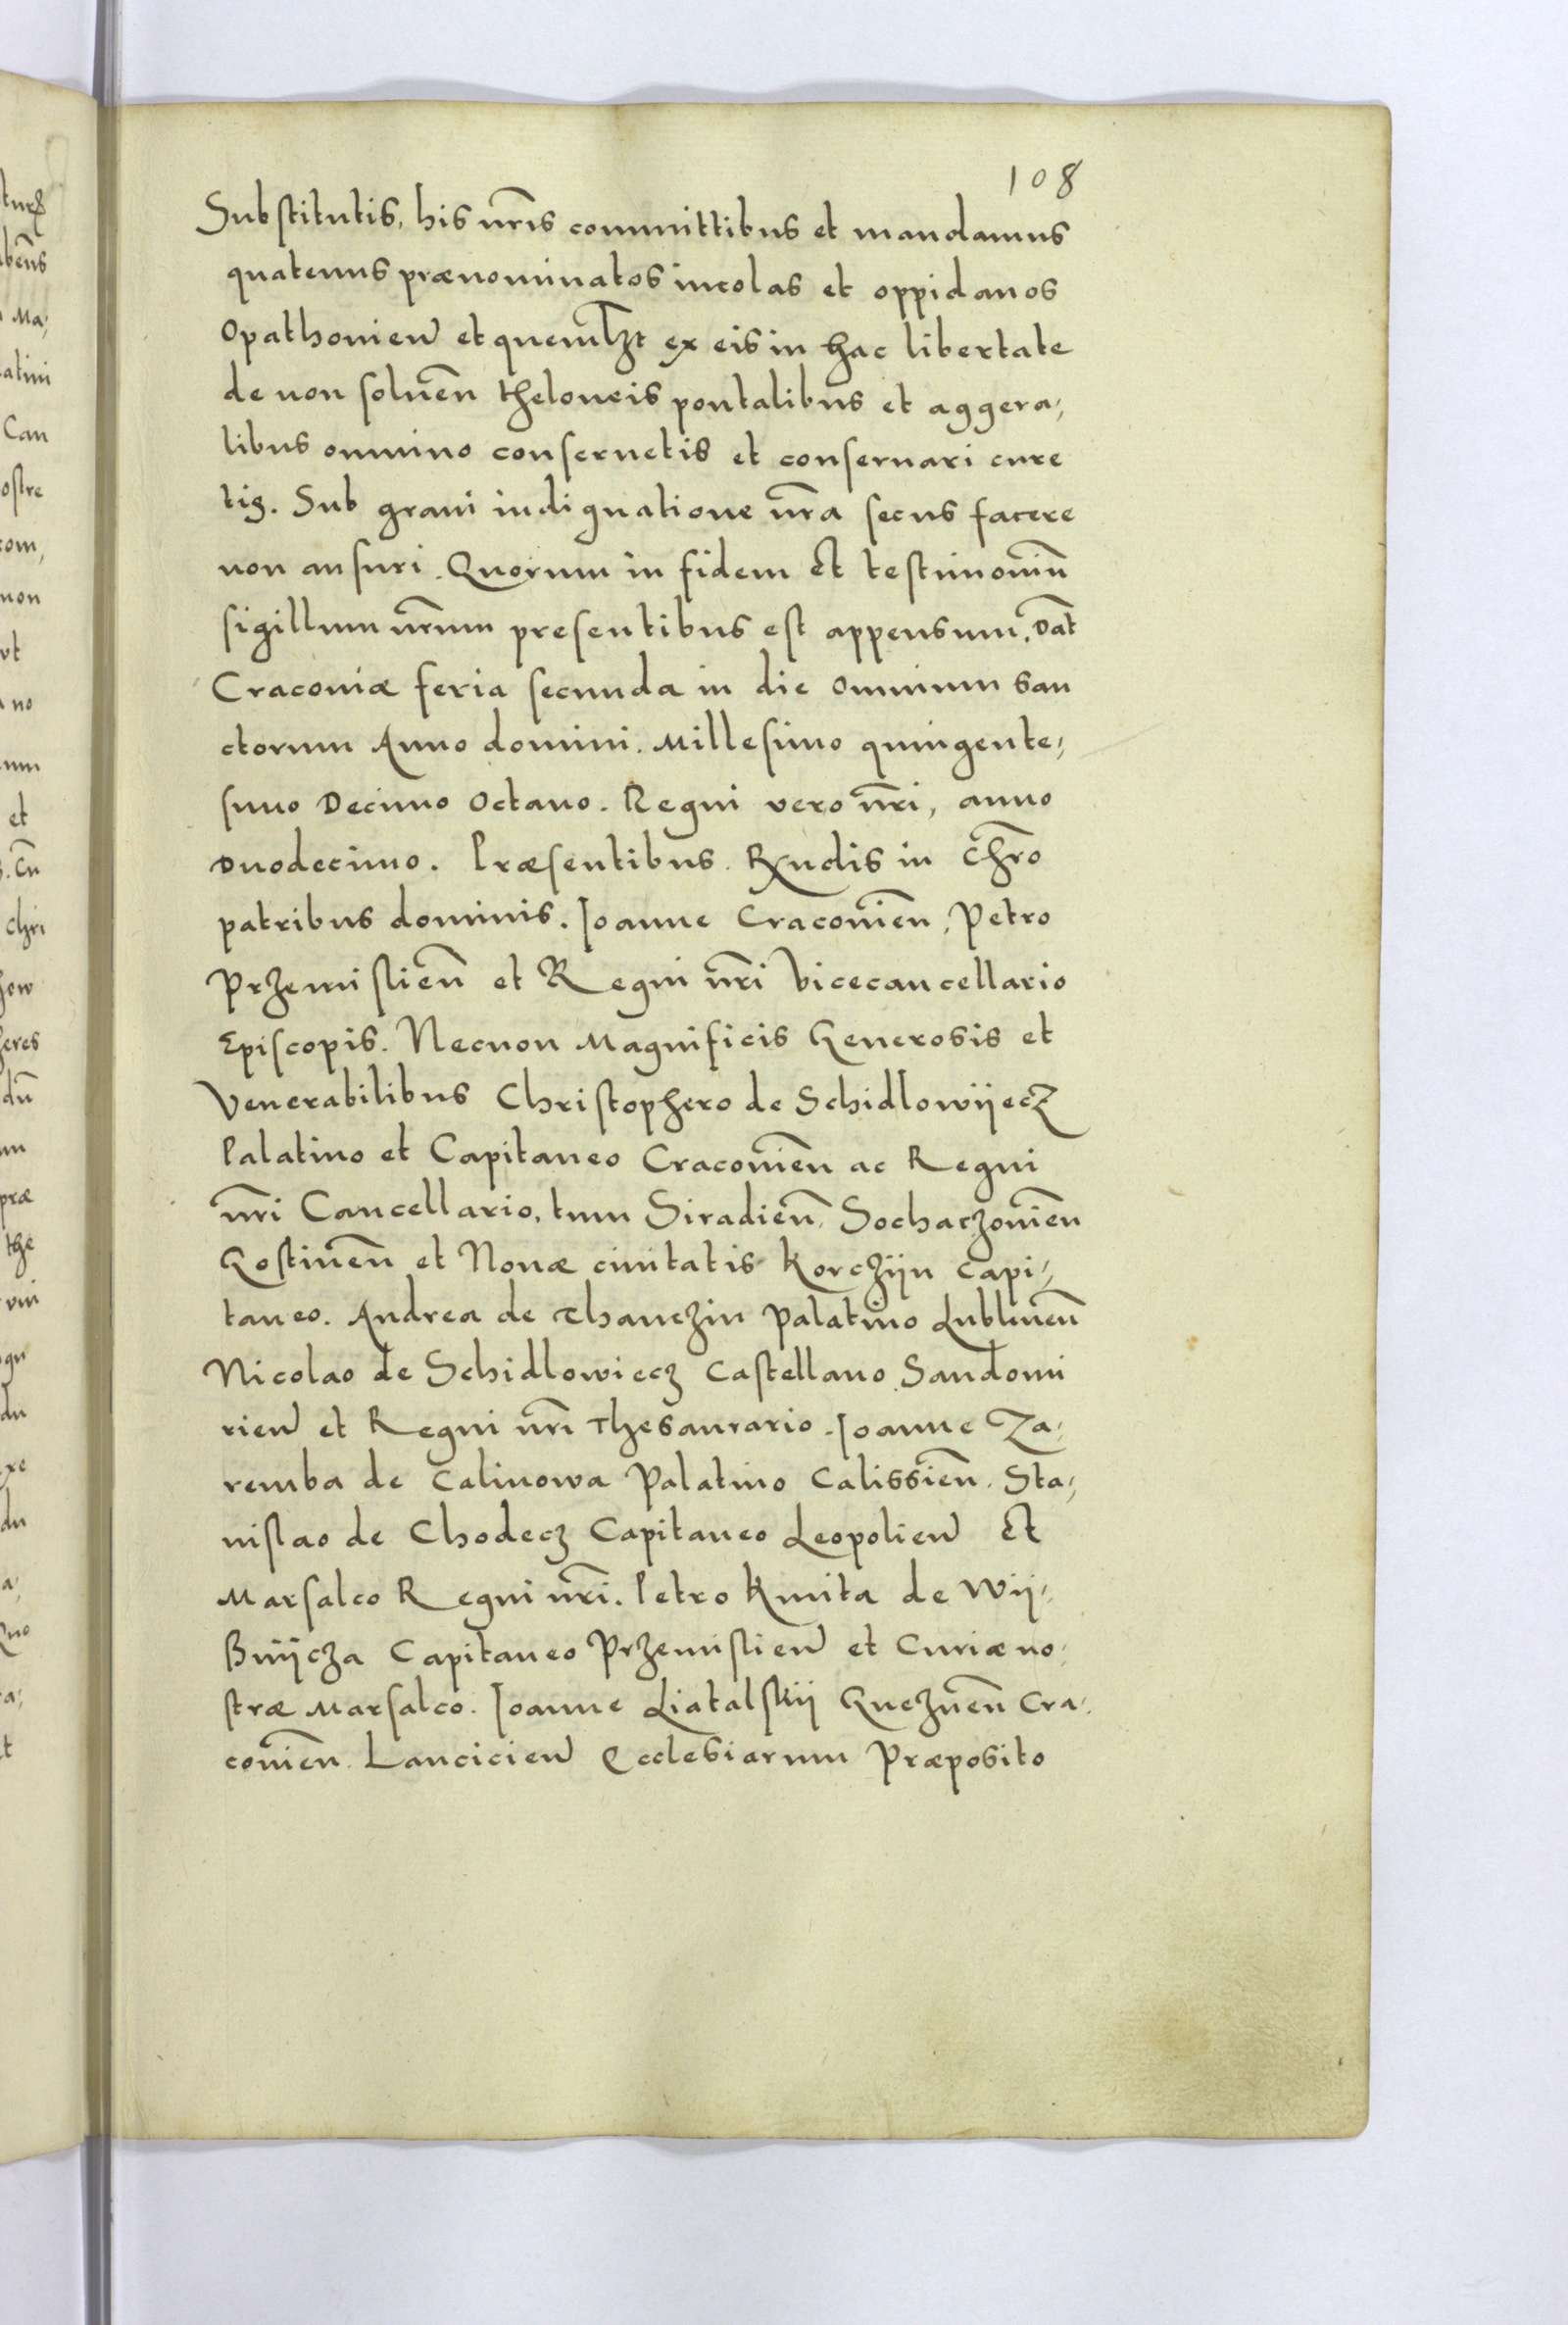 108
Substitutis, his nr̃is committibus et mandamus
quatenus prænominatos incolas et oppidanos
Opathonien et quemlʒt ex eis in hac libertate
de non soluen̄ theloneis pontalibus et aggera,
libus omnino conseruetis et conseruari cure
tis. Sub graui indignatione nr̃a secus facere
non ansuri. Quorum in fidem Et testimoniū
sigillum nr̃um presentibus est appensum. Dat̃
Craconiæ feria secunda in die omnium san
ctorum Anno domini. Millesimo quingente,
simo Decimo Octauo. Regni vero nr̃i, anno
Duodecimo. Præsentibus. Rx̃ndis in Chr̃o
patribus dominis. Ioanne Cracouien̄, Petro
Przemislien̄ et Regni nr̃i Vicecancellario
Episcopis. Necnon Magnificis Generosis et
Venerabilibus Christophero de Schidlowÿecz
Palatino et Capitaneo Cracouien̄ ac Regni
nr̃i Cancellario, tum Siradien̄, Sochaczouien̄
Gostinen̄ et Nouæ ciuitatis Korczÿn Capi,
taneo. Andrea de Thanczin Palatino Lublinen̄
Nicolao de Schidlowiecz Castellano Sandomi
rien et Regni nr̃i Thesaurario. Ioanne Za,
remba de Calinowa Palatino Calissien̄. Sta,
nislao de Chodecz Capitaneo Leopolien Et
Marsalco Regni nr̃i. Petro Kmita de Wÿ,
Bnÿcza Capitaneo Przemislien et Curiæ no,
stræ Marsalco. Ioanne Liatalskÿ Gneznen̄ Cra,
couien̄. Lancicien Ecclesiarum Præposito